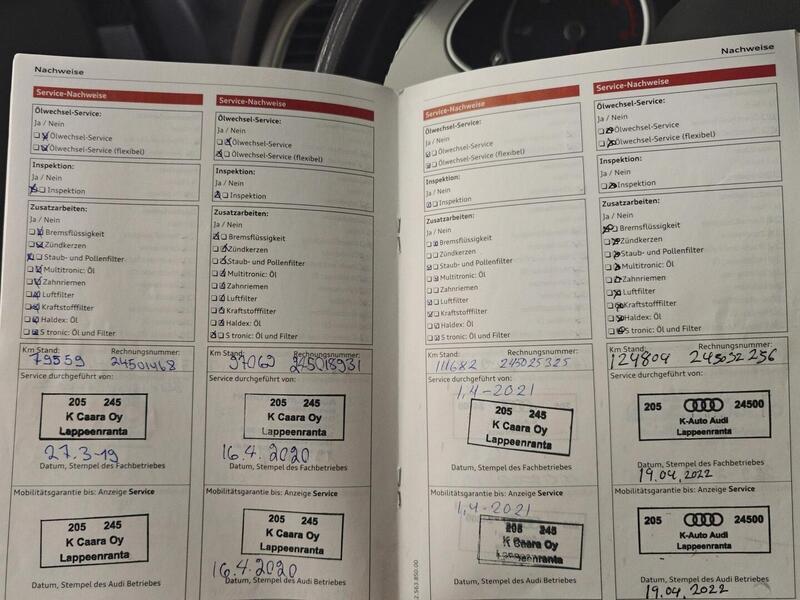 Nachweise
Service-Nachweise
Ölwechsel-Service:
Ja / Nein
Ölwechsel-Service
Ölwechsel-Service (flexibel)
Inspektion:
Ja / Nein
Inspektion
Zusatzarbeiten:
Ja / Nein
Bremsflüssigkeit
Zündkerzen
Staub- und Pollenfilter
Multitronic: Öl
Zahnriemen
Luftfilter
Kraftstofffilter
Haldex: Öl
S tronic: Öl und Filter
Km Stand: Rechnungsnummer:
79559 24501468
Service durchgeführt von:
205 245
K Caara Oy
Lappeenranta
27.3-19
Datum, Stempel des Fachbetriebes
Mobilitätsgarantie bis: Anzeige Service
205 245
K Caara Oy
Lappeenranta
Datum, Stempel des Audi Betriebes
Service-Nachweise
Ölwechsel-Service:
Ja / Nein
Ölwechsel-Service
Ölwechsel-Service (flexibel)
Inspektion:
Ja / Nein
Inspektion
Zusatzarbeiten:
Ja / Nein
Bremsflüssigkeit
Zündkerzen
Staub- und Pollenfilter
Multitronic: Öl
Zahnriemen
Luftfilter
Kraftstofffilter
Haldex: Öl
S tronic: Öl und Filter
Km Stand: Rechnungsnummer:
97062 245018931
Service durchgeführt von:
205 245
K Caara Oy
Lappeenranta
16.4.2020
Datum, Stempel des Fachbetriebes
Mobilitätsgarantie bis: Anzeige Service
205 245
K Caara Oy
Lappeenranta
16.4.2020
Datum, Stempel des Audi Betriebes
Service-Nachweise
Ölwechsel-Service:
Ja / Nein
Ölwechsel-Service
Ölwechsel-Service (flexibel)
Inspektion:
Ja / Nein
Inspektion
Zusatzarbeiten:
Ja / Nein
Bremsflüssigkeit
Zündkerzen
Staub- und Pollenfilter
Multitronic: Öl
Zahnriemen
Luftfilter
Kraftstofffilter
Haldex: Öl
S tronic: Öl und Filter
Km Stand: Rechnungsnummer:
111682 245025325
Service durchgeführt von:
1,4-2021
205 245
K Caara Oy
Lappeenranta
Datum, Stempel des Fachbetriebes
Mobilitätsgarantie bis: Anzeige Service
1,4-2021
205 245
K Caara Oy
Lappeenranta
Datum, Stempel des Audi Betriebes
2.563.850.00
Nachweise
Service-Nachweise
Ölwechsel-Service:
Ja / Nein
Ölwechsel-Service
Ölwechsel-Service (flexibel)
Inspektion:
Ja / Nein
Inspektion
Zusatzarbeiten:
Ja / Nein
Bremsflüssigkeit
Zündkerzen
Staub- und Pollenfilter
Multitronic: Öl
Zahnriemen
Luftfilter
Kraftstofffilter
Haldex: Öl
S tronic: Öl und Filter
Km Stand: Rechnungsnummer:
124804 245032256
Service durchgeführt von:
205 24500
K-Auto Audi
Lappeenranta
Datum, Stempel des Fachbetriebes
19.04.2022
Mobilitätsgarantie bis: Anzeige Service
205 24500
K-Auto Audi
Lappeenranta
Datum, Stempel des Audi Betriebes
19.04.2022